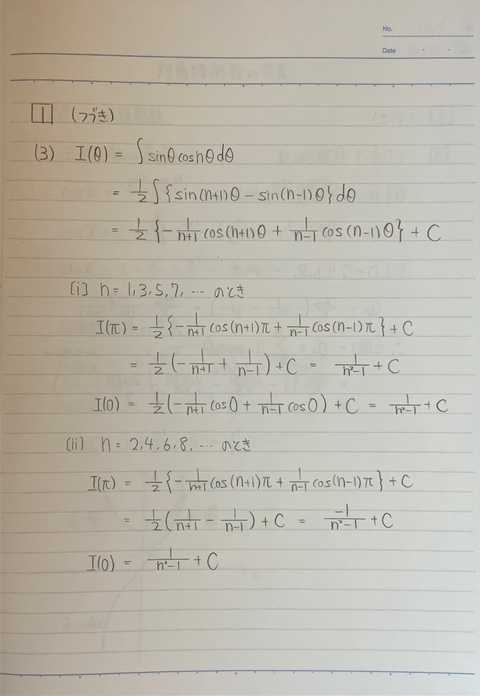 No.
Date
1 (つづき)
(3) I(θ) = ∫ sinθ cosnθ dθ
= 1/2 ∫ { sin(n+1)θ - sin(n-1)θ } dθ
= 1/2 { - 1/(n+1) cos(n+1)θ + 1/(n-1) cos(n-1)θ } + C
[i] n = 1,3,5,7, ... のとき
I(π) = 1/2 { - 1/(n+1) cos(n+1)π + 1/(n-1) cos(n-1)π } + C
= 1/2 ( - 1/(n+1) + 1/(n-1) ) + C = 1/(n²-1) + C
I(0) = 1/2 ( - 1/(n+1) cos0 + 1/(n-1) cos0 ) + C = 1/(n²-1) + C
(ii) n = 2,4,6,8, ... のとき
I(π) = 1/2 { - 1/(n+1) cos(n+1)π + 1/(n-1) cos(n-1)π } + C
= 1/2 ( 1/(n+1) - 1/(n-1) ) + C = -1/(n²-1) + C
I(0) = 1/(n²-1) + C